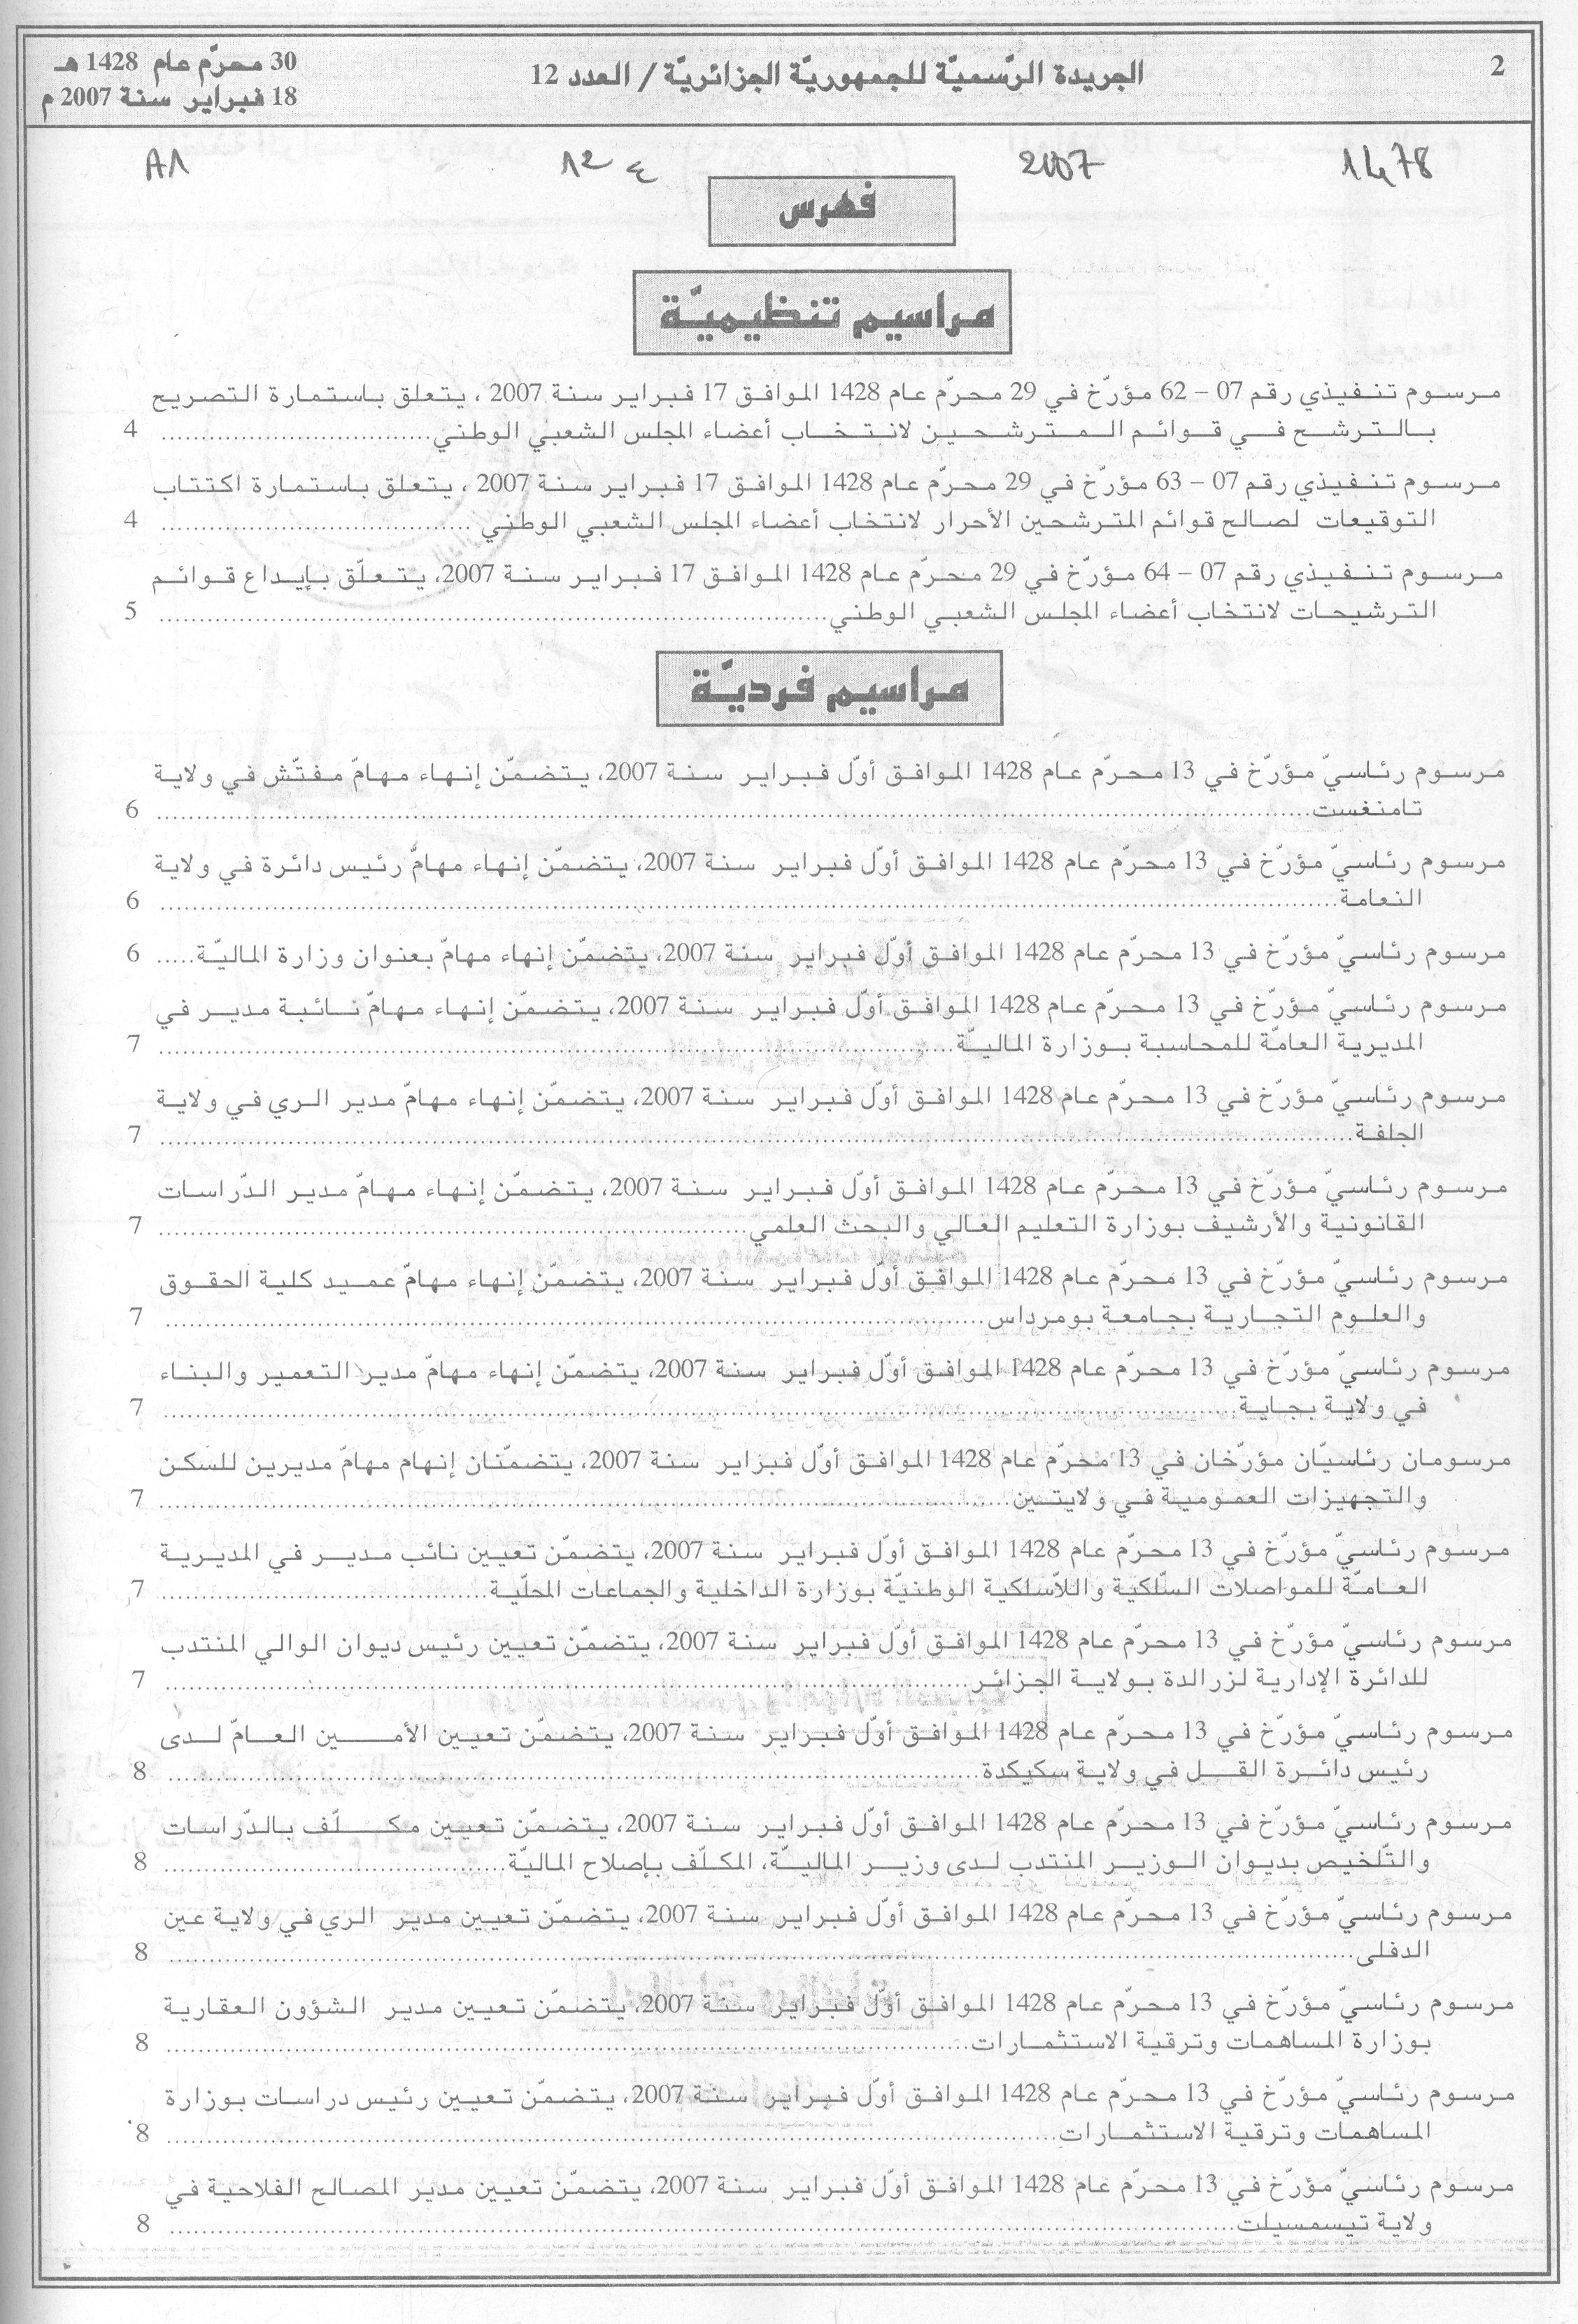 2
الجريدة الرّسميّة للجمهوريّة الجزائريّة / العدد 12
30 محرّم عام 1428 هـ
18 فبراير سنة 2007 م
1478
2007
12 ع
A1
فهرس
مراسيم تنظيميّة
مرسوم تنفيذي رقم 07 – 62 مؤرّخ في 29 محرّم عام 1428 الموافق 17 فبراير سنة 2007 ، يتعلق باستمارة التصريح
بالترشح في قوائم المترشحين لانتخاب أعضاء المجلس الشعبي الوطني.................................. 4
مرسوم تنفيذي رقم 07 – 63 مؤرّخ في 29 محرّم عام 1428 الموافق 17 فبراير سنة 2007 ، يتعلق باستمارة اكتتاب
التوقيعات لصالح قوائم المترشحين الأحرار لانتخاب أعضاء المجلس الشعبي الوطني .................................. 4
مرسوم تنفيذي رقم 07 – 64 مؤرّخ في 29 محرّم عام 1428 الموافق 17 فبراير سنة 2007، يتعلّق بإيداع قوائم
الترشيحات لانتخاب أعضاء المجلس الشعبي الوطني.................................. 5
مراسيم فرديّة
مرسوم رئاسيّ مؤرّخ في 13 محرّم عام 1428 الموافق أوّل فبراير سنة 2007، يتضمّن إنهاء مهامّ مفتّش في ولاية
تامنغست.................................. 6
مرسوم رئاسيّ مؤرّخ في 13 محرّم عام 1428 الموافق أوّل فبراير سنة 2007، يتضمّن إنهاء مهامّ رئيس دائرة في ولاية
النعامة.................................. 6
مرسوم رئاسيّ مؤرّخ في 13 محرّم عام 1428 الموافق أوّل فبراير سنة 2007، يتضمّن إنهاء مهامّ بعنوان وزارة الماليّة..... 6
مرسوم رئاسيّ مؤرّخ في 13 محرّم عام 1428 الموافق أوّل فبراير سنة 2007، يتضمّن إنهاء مهامّ نائبة مدير في
المديرية العامّة للمحاسبة بوزارة الماليّة.................................. 7
مرسوم رئاسيّ مؤرّخ في 13 محرّم عام 1428 الموافق أوّل فبراير سنة 2007، يتضمّن إنهاء مهامّ مدير الري في ولاية
الجلفة.................................. 7
مرسوم رئاسيّ مؤرّخ في 13 محرّم عام 1428 الموافق أوّل فبراير سنة 2007، يتضمّن إنهاء مهامّ مدير الدّراسات
القانونية والأرشيف بوزارة التعليم العالي والبحث العلمي.................................. 7
مرسوم رئاسيّ مؤرّخ في 13 محرّم عام 1428 الموافق أوّل فبراير سنة 2007، يتضمّن إنهاء مهامّ عميد كلية الحقوق
والعلوم التجارية بجامعة بومرداس.................................. 7
مرسوم رئاسيّ مؤرّخ في 13 محرّم عام 1428 الموافق أوّل فبراير سنة 2007، يتضمّن إنهاء مهامّ مدير التعمير والبناء
في ولاية بجاية.................................. 7
مرسومان رئاسيّان مؤرّخان في 13 محرّم عام 1428 الموافق أوّل فبراير سنة 2007، يتضمّنان إنهام مهامّ مديرين للسكن
والتجهيزات العمومية في ولايتين.................................. 7
مرسوم رئاسيّ مؤرّخ في 13 محرّم عام 1428 الموافق أوّل فبراير سنة 2007، يتضمّن تعيين نائب مدير في المديرية
العامّة للمواصلات السّلكية واللاّسلكية الوطنيّة بوزارة الداخلية والجماعات المحلّية.................................. 7
مرسوم رئاسيّ مؤرّخ في 13 محرّم عام 1428 الموافق أوّل فبراير سنة 2007، يتضمّن تعيين رئيس ديوان الوالي المنتدب
للدائرة الإدارية لزرالدة بولاية الجزائر.................................. 7
مرسوم رئاسيّ مؤرّخ في 13 محرّم عام 1428 الموافق أوّل فبراير سنة 2007، يتضمّن تعيين الأمين العامّ لدى
رئيس دائرة القل في ولاية سكيكدة.................................. 8
مرسوم رئاسيّ مؤرّخ في 13 محرّم عام 1428 الموافق أوّل فبراير سنة 2007، يتضمّن تعيين مكلّف بالدّراسات
والتّلخيص بديوان الوزير المنتدب لدى وزير الماليّة، المكلّف بإصلاح الماليّة.................................. 8
مرسوم رئاسيّ مؤرّخ في 13 محرّم عام 1428 الموافق أوّل فبراير سنة 2007، يتضمّن تعيين مدير الري في ولاية عين
الدفلى.................................. 8
مرسوم رئاسيّ مؤرّخ في 13 محرّم عام 1428 الموافق أوّل فبراير سنة 2007، يتضمّن تعيين مدير الشؤون العقارية
بوزارة المساهمات وترقية الاستثمارات.................................. 8
مرسوم رئاسيّ مؤرّخ في 13 محرّم عام 1428 الموافق أوّل فبراير سنة 2007، يتضمّن تعيين رئيس دراسات بوزارة
المساهمات وترقية الاستثمارات.................................. 8
مرسوم رئاسيّ مؤرّخ في 13 محرّم عام 1428 الموافق أوّل فبراير سنة 2007، يتضمّن تعيين مدير المصالح الفلاحية في
ولاية تيسمسيلت.................................. 8